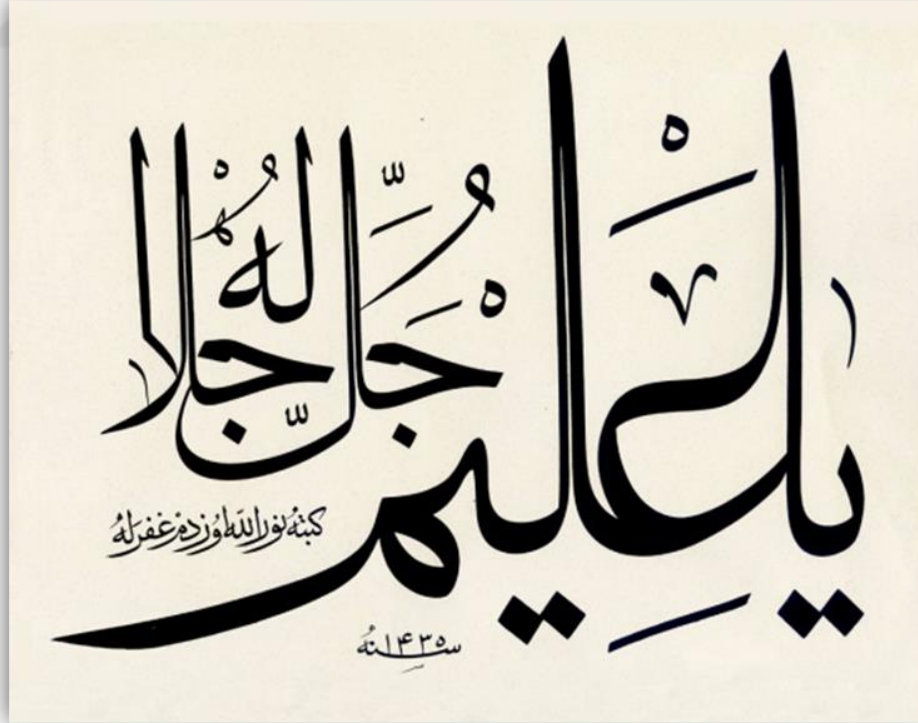 يا عليم
جل جلاله
كتبه نورالله اوزدم غفرله
سنه ١٤٣٥